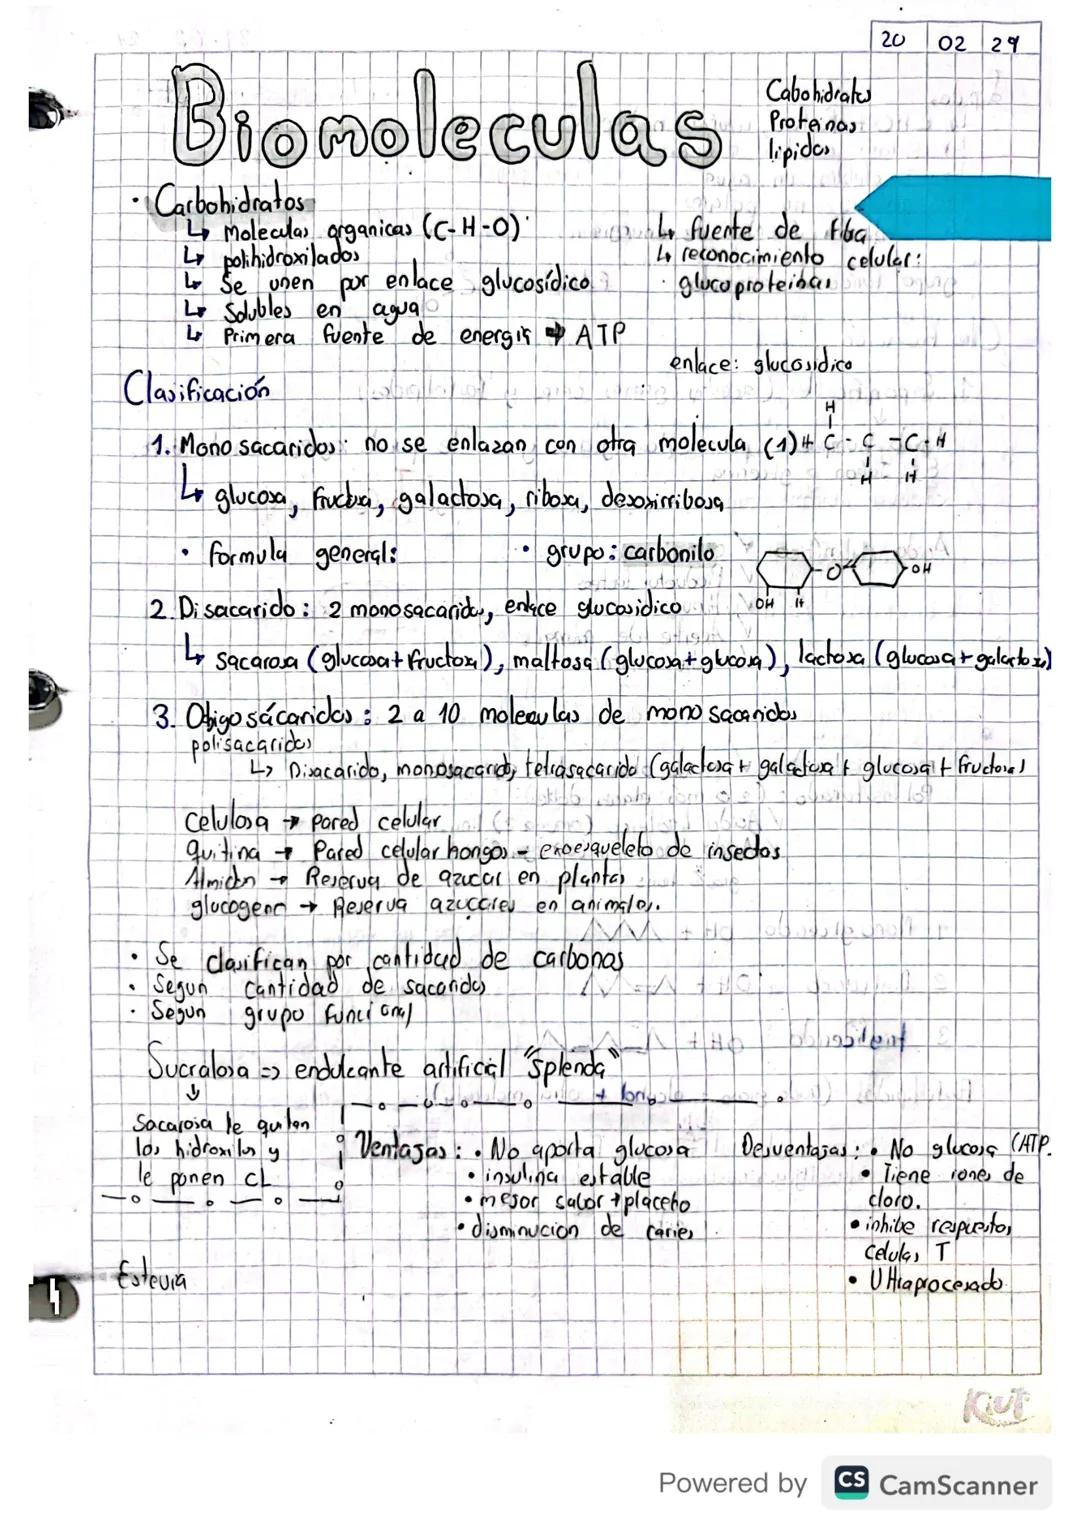 20 02 24
Biomoleculas
Cabohidratos
Proteinas
lipidos
· Carbohidratos
↳ moleculas organicas (C-H-O)
↳ polihidroxilados
↳ Se unen por enlace glucosídico
↳ Solubles en agua
↳ Primera fuente de energia → ATP
↳ fuente de fiba
↳ reconocimiento celular:
· glucoproteinas
enlace: glucosidico
Clasificación
1. Mono sacaridos: no se enlazan con otra molecula (1) H C - C - C - H
H
H H
↳ glucosa, fructosa, galactosa, ribosa, desoxirribosa
• formula general: • grupo: carbonilo
-O- OH
OH H
2. Disacarido: 2 monosacaridos, enlace glucosidico
↳ sacarosa (glucosa+fructosa), maltosa (glucosa+glucosa), lactosa (glucosa+galactosa)
3. Oligosácaridos: 2 a 10 moleculas de monosacaridos
polisacaridos
↳ Disacarido, monosacarido, tetrasacarido (galactosa + galactosa + glucosa + fructosa)
Celulosa → pared celular
quitina → Pared celular hongos - exoesqueleto de insectos
Almidon → Reserva de azucar en plantas
glucogeno → Reserva azucares en animales.
• Se clasifican por cantidad de carbonos
• Segun cantidad de sacaridos
• Segun grupo funcional
Sucralosa => endulcante artificial "Splenda"
↓
Sacarosa le quitan
los hidroxilos y
le ponen CL
Ventajas: • No aporta glucosa
• insulina estable
• mejor sabor + placebo
• disminucion de caries
Desventajas: • No glucosa (ATP.
• Tiene iones de
cloro.
• inhibe respuestas
celulas T
• Ultraprocesado
Estevia
Kiut
Powered by CS CamScanner